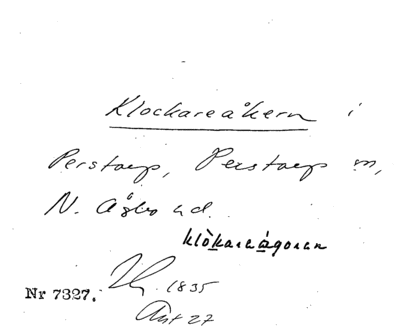 Klockareåkern i
Perstorp, Perstorp sn,
N. Åsbo hd.
klòkaraágoran
1835
Nr 7327.
Akt 27